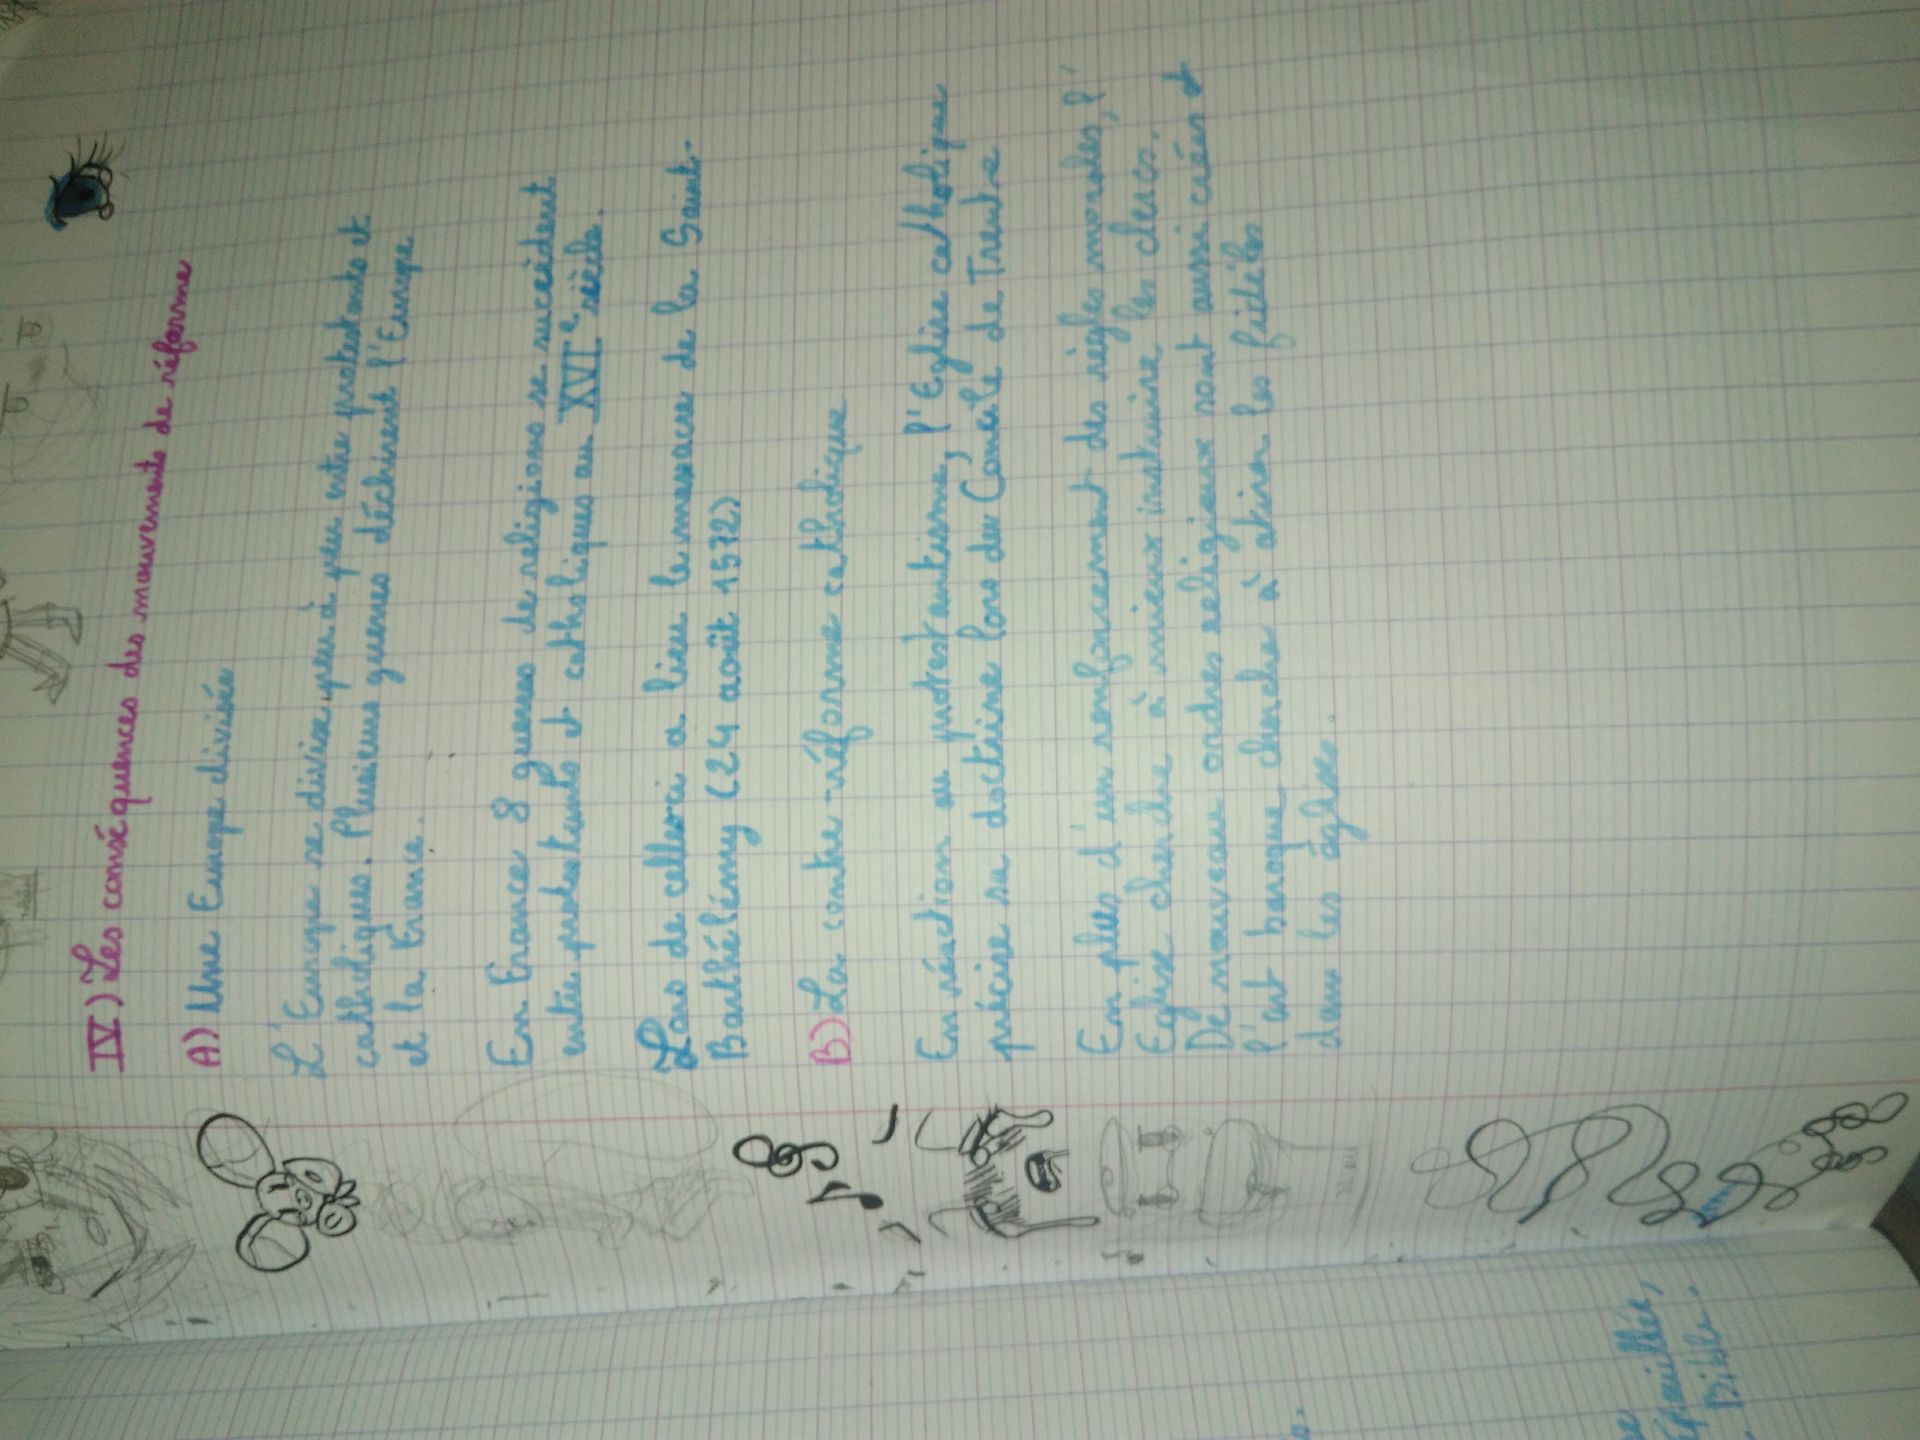 IV) Les conséquences des mouvements de réforme
A) Une Europe divisée
L'Europe se divise peu à peu entre protestants et
catholiques. Plusieurs guerres déchirent l'Europe
et la France.
En France 8 guerres de religions se succèdent
entre protestants et catholiques au XVIe siècle.
Lors de celles-ci a lieu le massacre de la Saint-
Barthélémy (24 août 1572)
B) La contre-réforme catholique
En réaction au protestantisme, l'Eglise catholique
précise sa doctrine lors du Concile de Trente
En plus d'un renforcement des règles morales, l'
Eglise cherche à mieux instruire les clercs.
De nouveaux ordres religieux sont aussi créés et
l'art baroque cherche à atirer les fidèles
dans les églises.
Bible.